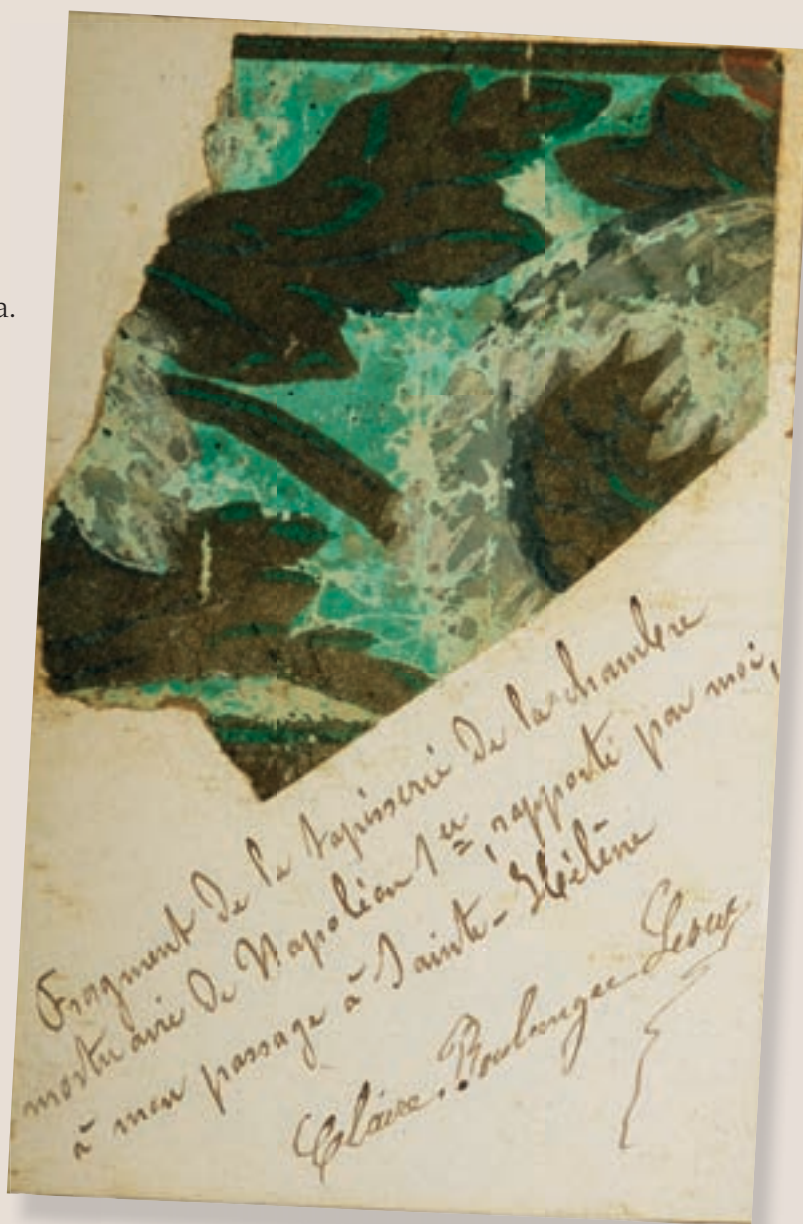 a.
Fragment de la tapisserie de la chambre
mortuaire de Napoléon 1er, rapporté par moi,
à mon passage à Sainte-Hélène
Claire. Boulanger